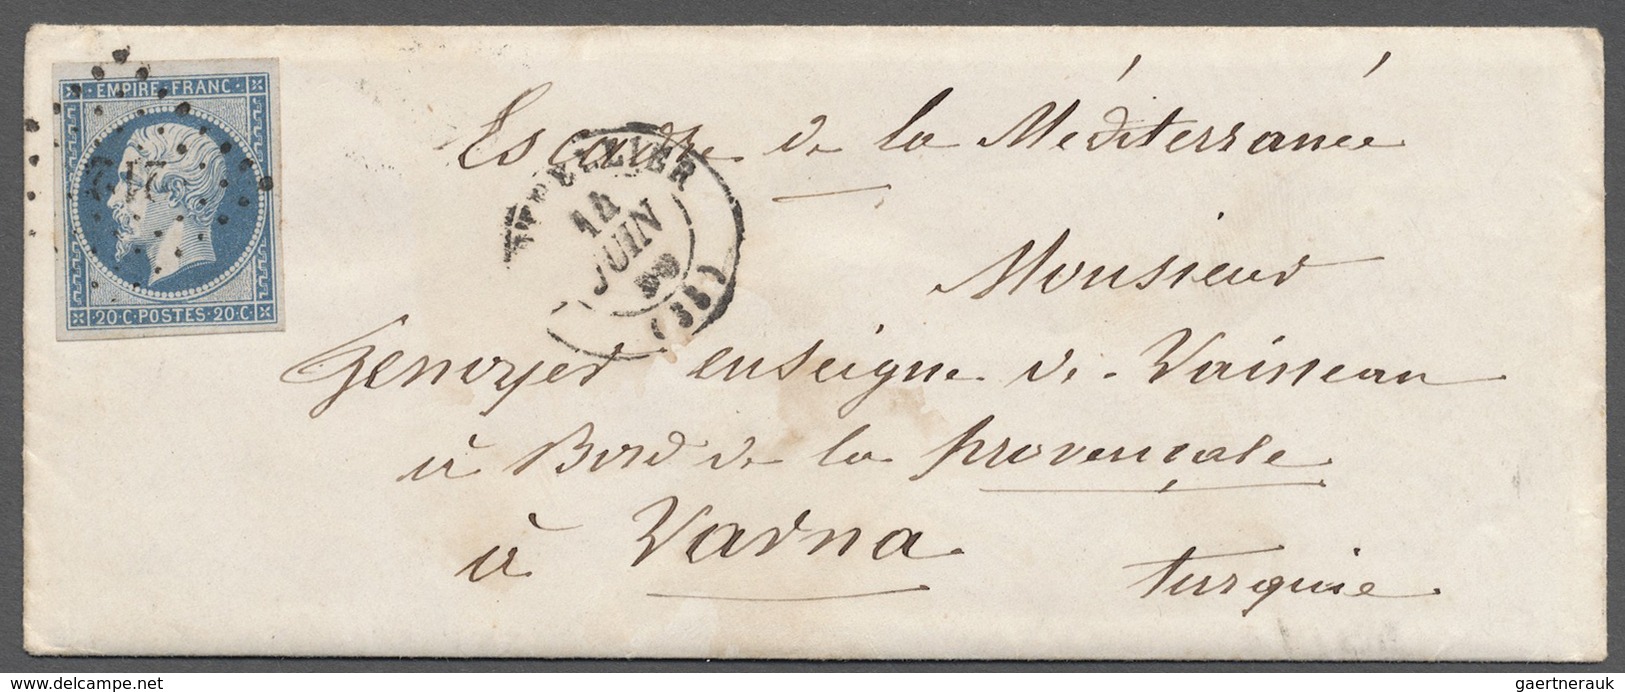 EMPIRE FRANC
20·C·POSTES·20·C
MONTPELLIER
14
JUIN
(33)
Escadre de la Méditerranée
Monsieur
Genoyer enseigne de Vaisseau
à Bord de la provençale
à Varna
turquie
delcampe.net
gaertnerauk